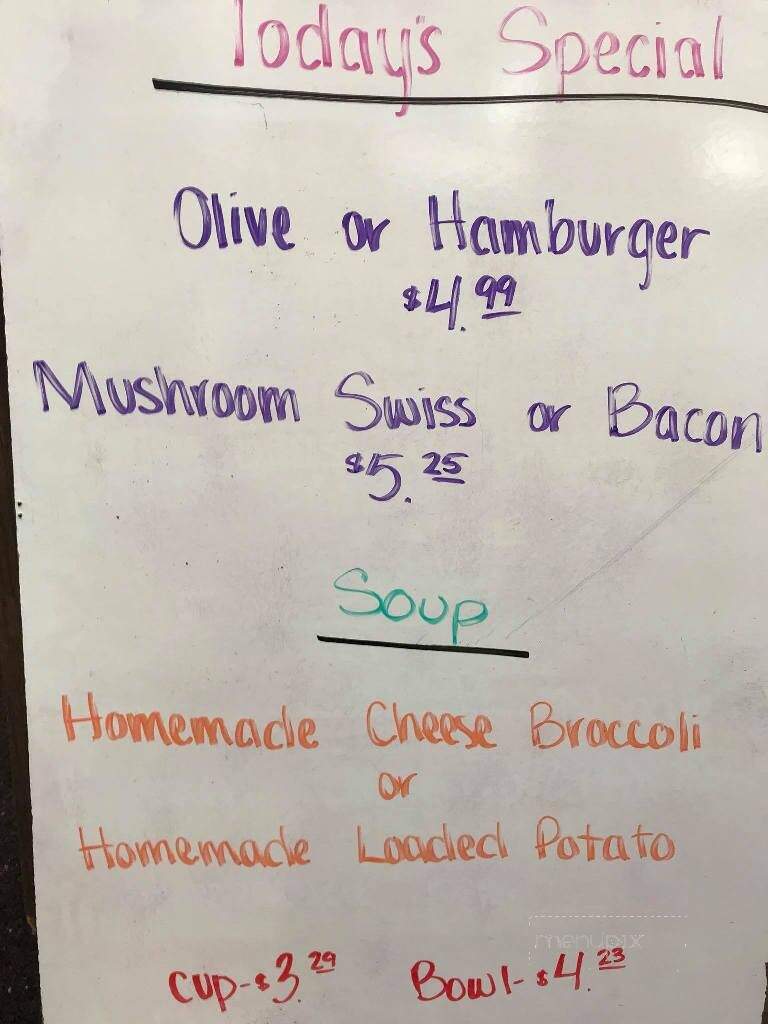 Today's Special
Olive or Hamburger
$4.99
Mushroom Swiss or Bacon
$5.25
Soup
Homemade Cheese Broccoli
or
Homemade Loaded Potato
menupix
cup-$3.29 Bowl-$4.23